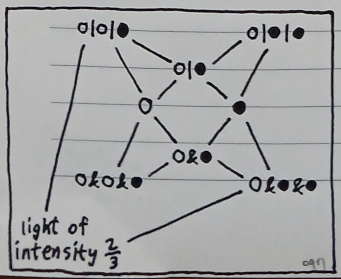 o|o|● o|●|●
o|●
o ●
o&●
o&o&● o&●&●
light of
intensity 2/3